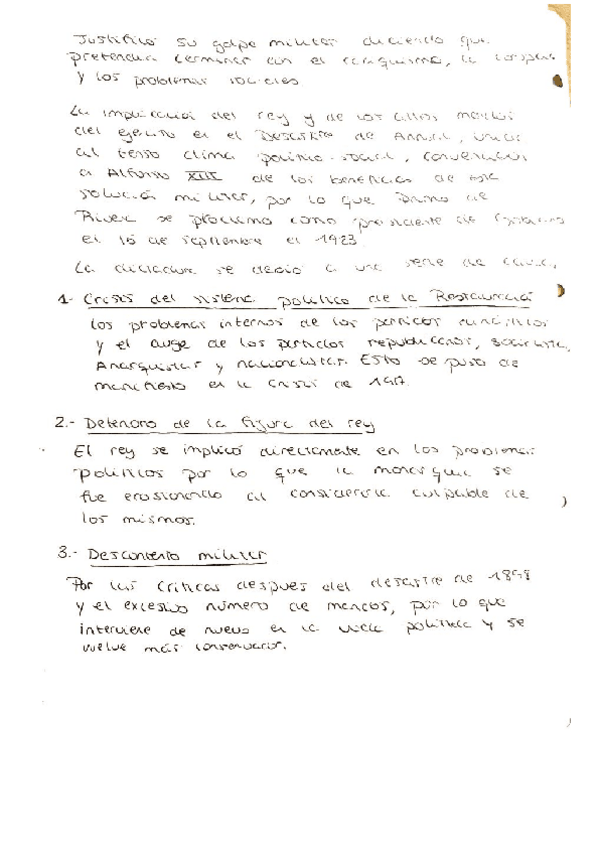 Justificó su golpe militar diciendo que
pretendía terminar con el caciquismo, la
y los problemas sociales
La implicación del rey y de los altos mandos
del ejército en el Desastre de Annual, unido
al tenso clima político-social, convencieron
a Alfonso XIII de los beneficios de esta
solución militar, por lo que Primo de
Rivera se proclamó como presidente de Gobierno
el 15 de septiembre el 1923.
La dictadura se debió a una serie de causas,
1- Crisis del sistema político de la Restauración
Los problemas internos de los partidos dinásticos
y el auge de los partidos republicanos, socialistas,
Anarquistas y nacionalistas. Esto se puso de
manifiesto en la Crisis de 1917.
2.- Deterioro de la figura del rey
El rey se implicó directamente en los problemas
políticos por lo que la monarquía se
fue erosionando al considerarla culpable de
los mismos.
3.- Descontento militar
Por las críticas despues del desastre de 1898
y el excesivo número de mandos, por lo que
interviene de nuevo en la vida política y se
vuelve más conservador.